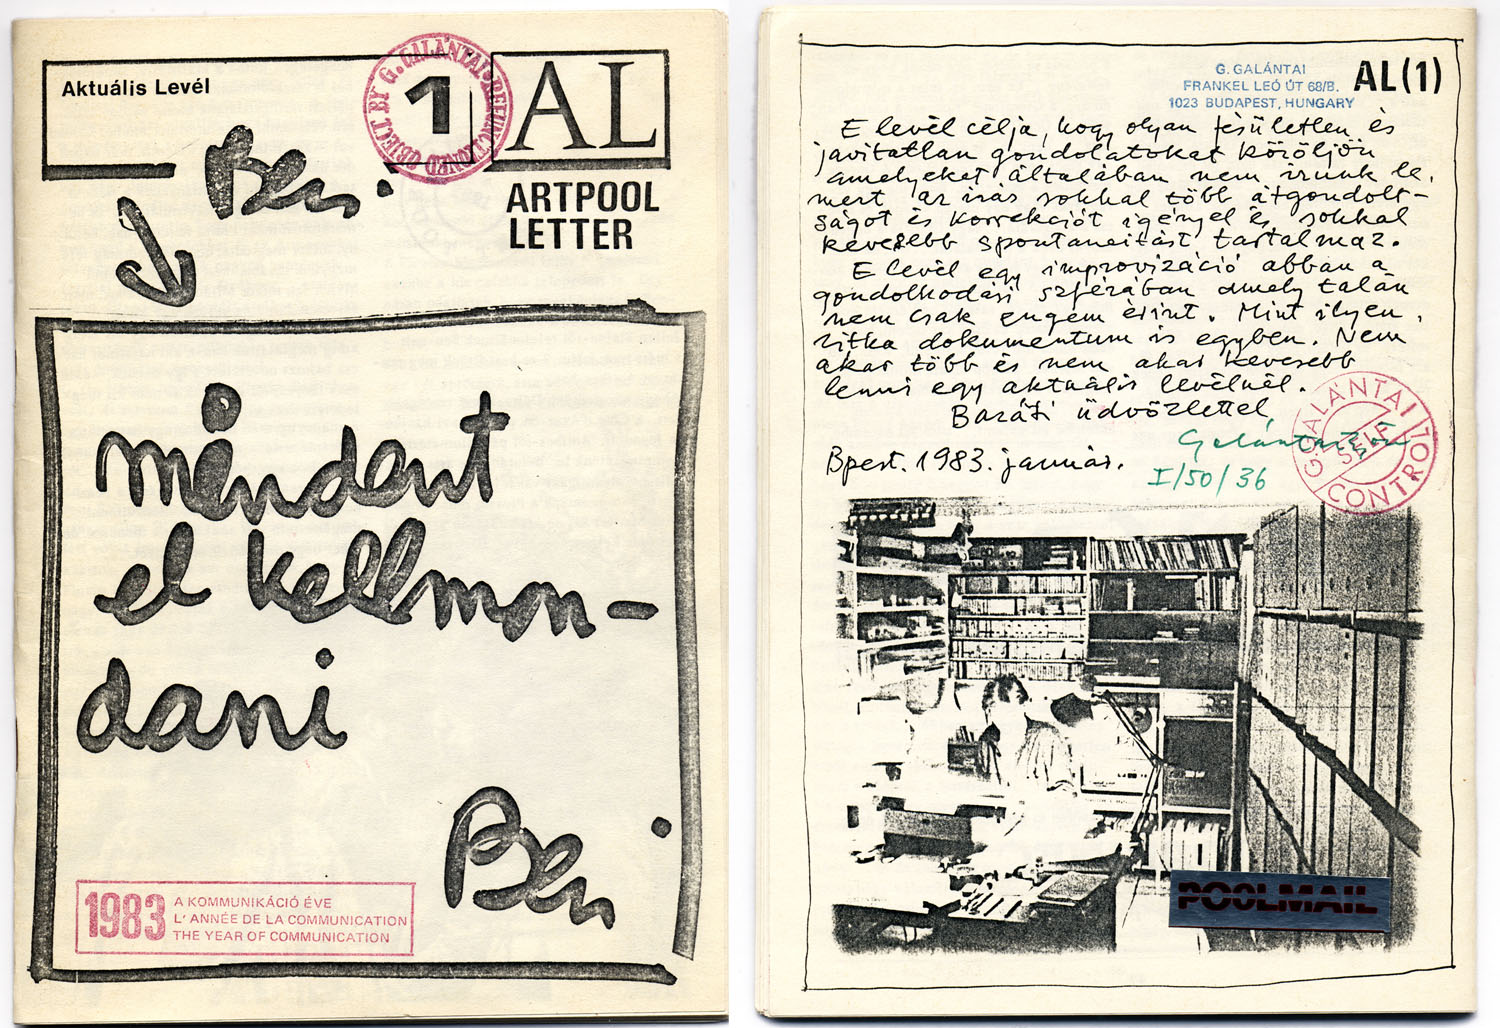 Aktuális Levél
OBJECT BY G. GALÁNTAI · REFUNCTIONED
1
AL
ARTPOOL
LETTER
Ben.
mindent
el kell mon-
dani
Ben
1983
A KOMMUNIKÁCIÓ ÉVE
L' ANNÉE DE LA COMMUNICATION
THE YEAR OF COMMUNICATION
G. GALÁNTAI
FRANKEL LEÓ ÚT 68/B.
1023 BUDAPEST, HUNGARY
AL(1)
E levél célja, hogy olyan fésületlen és
javitatlan gondolatokat közöljön
amelyeket általában nem irunk le,
mert az irás sokkal több átgondolt-
ságot és korrekciót igényel és sokkal
kevesebb spontaneitást tartalmaz.
E levél egy improvizáció abban a
gondolkodási szférában amely talán
nem csak engem érint. Mint ilyen,
ritka dokumentum is egyben. Nem
akar több és nem akar kevesebb
lenni egy aktuális levélnél.
Baráti üdvözlettel
Galántai
Bpest. 1983. január.
I/50/36
G. GALÁNTAI
SELF
CONTROL
POOLMAIL